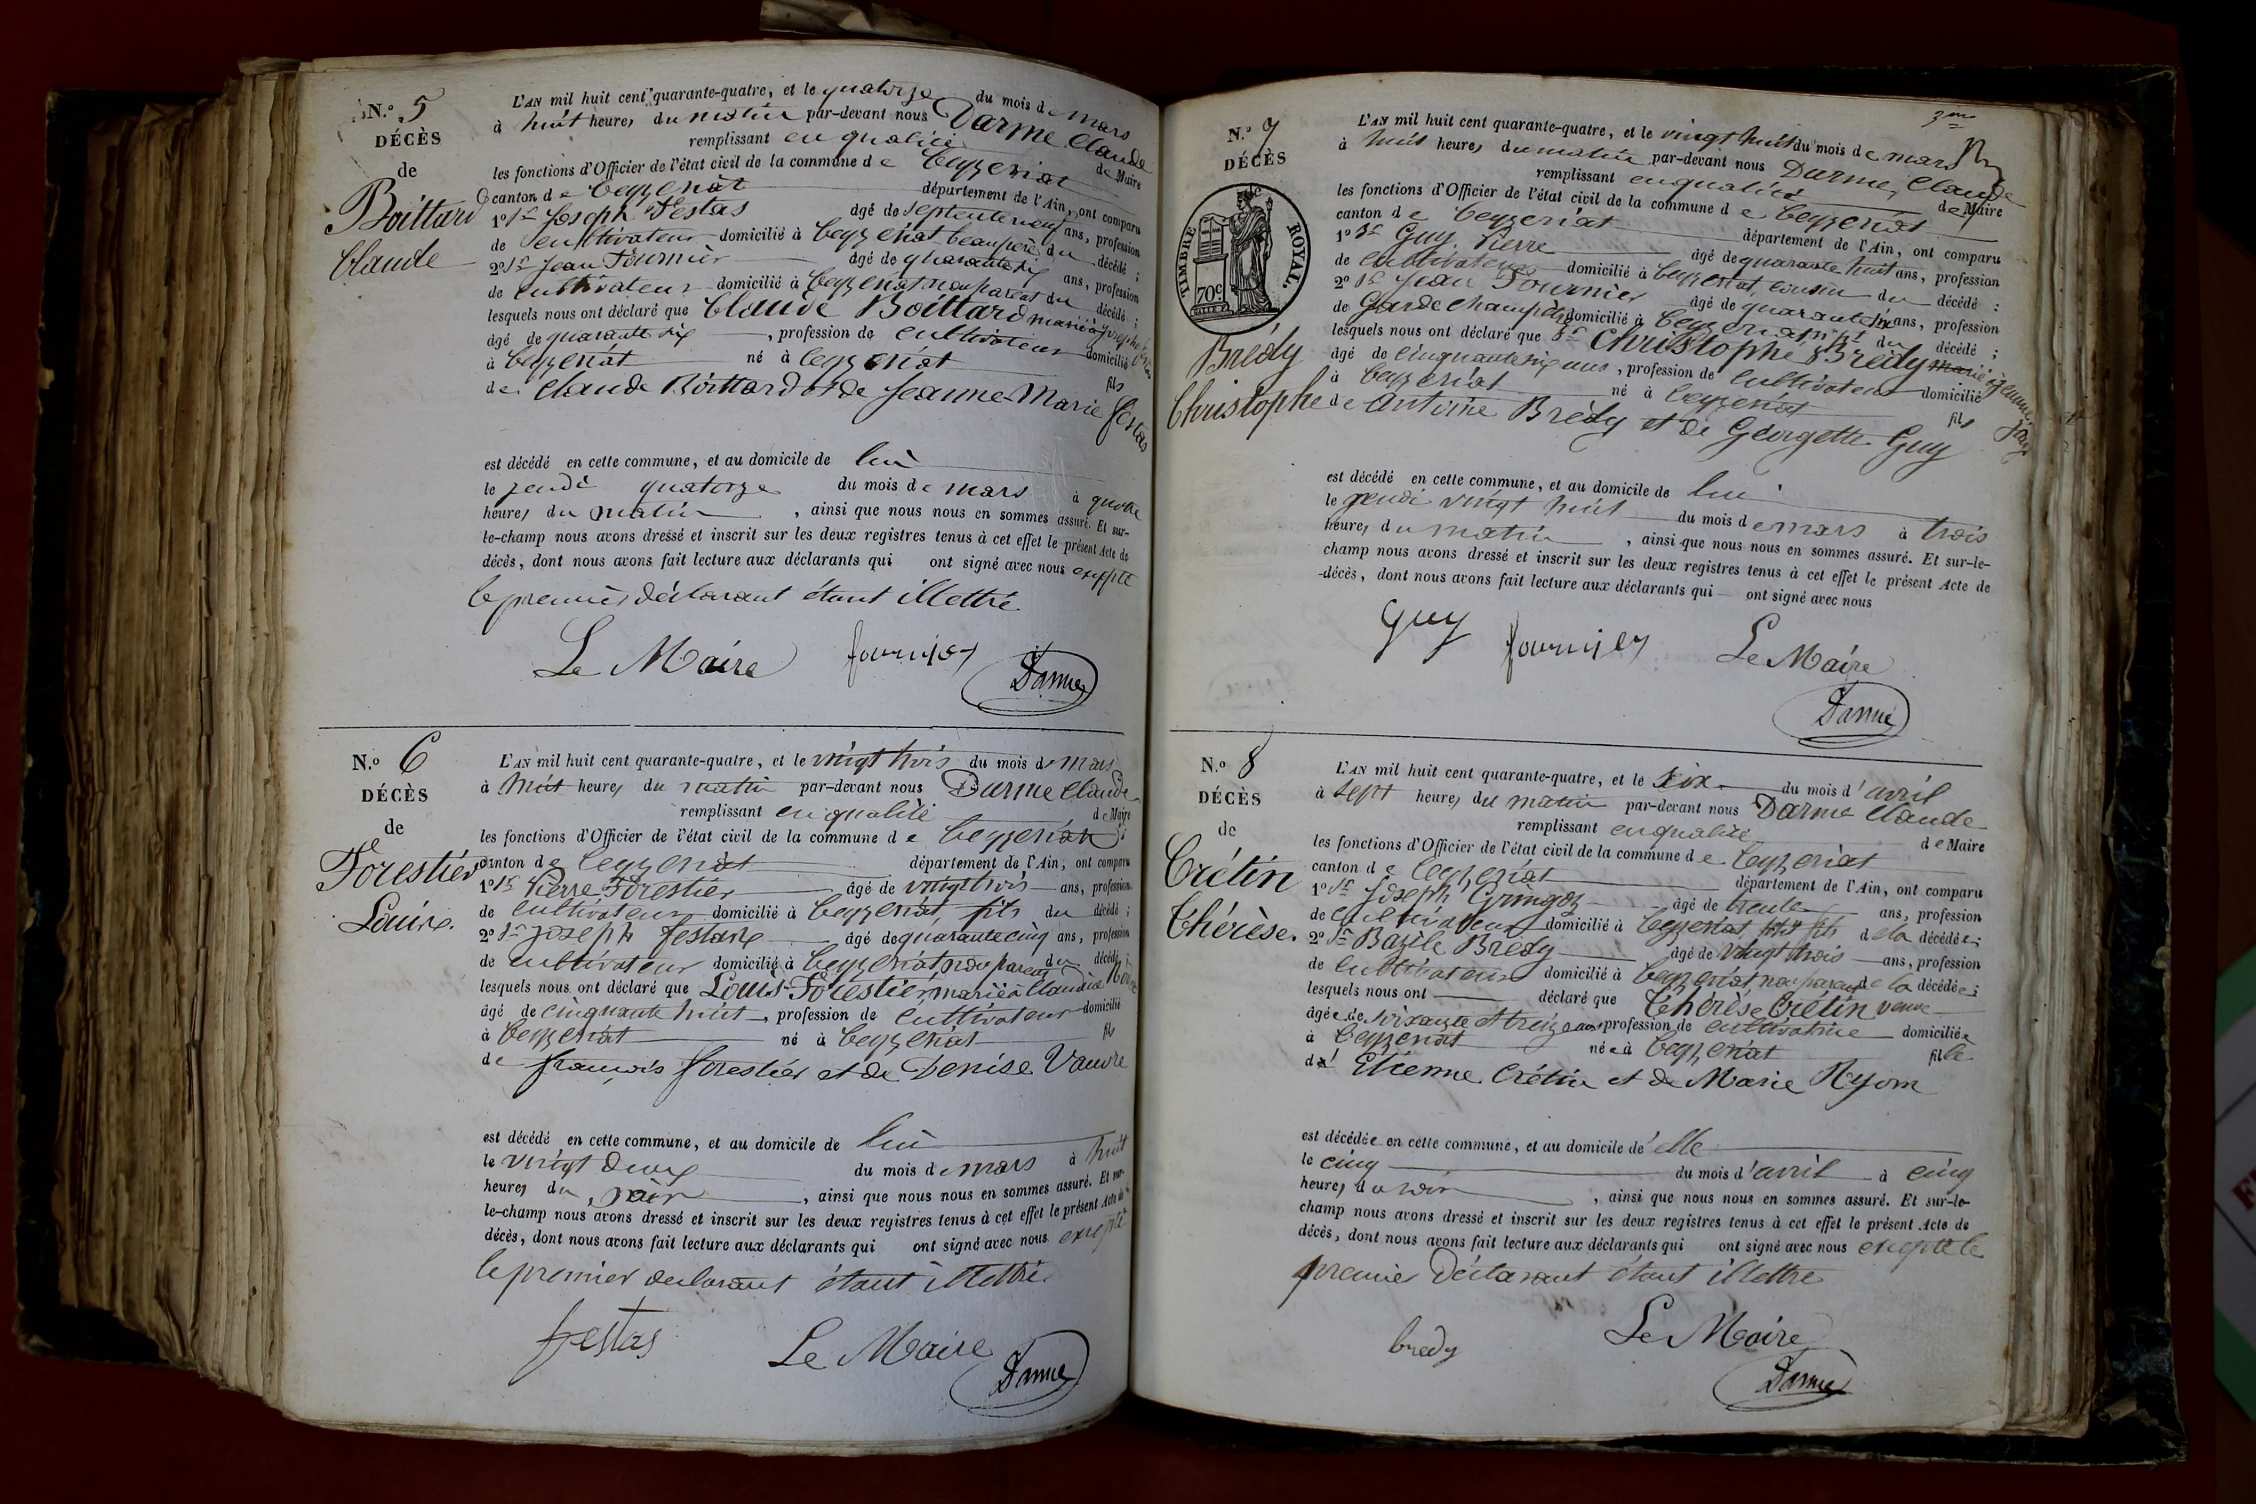 N.º 5
DÉCÈS
de
Boittard
Claude
L'AN mil huit cent quarante-quatre, et le quatorze du mois de mars
à huit heures du matin par-devant nous Darme Claude
remplissant en qualité de Maire
les fonctions d'Officier de l'état civil de la commune de Ceyzeriat
canton de Ceyzeriat département de l'Ain, ont comparu
1º Sr Joseph Festas âgé de septante neuf ans, profession
de cultivateur domicilié à Ceyzeriat beaupère du décédé;
2º Sr Jean Fournier âgé de quarante six ans, profession
de cultivateur domicilié à Ceyzeriat non parent du décédé;
lesquels nous ont déclaré que Claude Boittard marié à
âgé de quarante six, profession de cultivateur domicilié
à Ceyzeriat né à Ceyzeriat fils
de Claude Boittard et de Jeanne Marie Festas
est décédé en cette commune, et au domicile de lui
le jeudi quatorze du mois de mars à quatre
heures du matin, ainsi que nous nous en sommes assuré. Et sur-
le-champ nous avons dressé et inscrit sur les deux registres tenus à cet effet le présent Acte de
décès, dont nous avons fait lecture aux déclarants qui ont signé avec nous excepté
le premier déclarant étant illettré
Le Maire fournier Darme
N.º 6
DÉCÈS
de
Forestier
Louis.
L'AN mil huit cent quarante-quatre, et le vingt trois du mois de mars
à huit heures du matin par-devant nous Darme Claude
remplissant en qualité de Maire
les fonctions d'Officier de l'état civil de la commune de Ceyzeriat
canton de Ceyzeriat département de l'Ain, ont comparu
1º Sr Pierre Forestier âgé de vingt trois ans, profession
de cultivateur domicilié à Ceyzeriat, fils du décédé;
2º Sr Joseph Festas âgé de quarante cinq ans, profession
de cultivateur domicilié à Ceyzeriat non parent du décédé;
lesquels nous ont déclaré que Louis Forestier, marié à Claudine
âgé de cinquante huit, profession de cultivateur domicilié
à Ceyzeriat né à Ceyzeriat fils
de françois forestier et de Denise Vauvre
est décédé en cette commune, et au domicile de lui
le vingt deux du mois de mars à huit
heures du soir, ainsi que nous nous en sommes assuré. Et sur-
le-champ nous avons dressé et inscrit sur les deux registres tenus à cet effet le présent Acte de
décès, dont nous avons fait lecture aux déclarants qui ont signé avec nous excepté
le premier declarant étant illettré
festas Le Maire Darme
3me
N.º 7
DÉCÈS
TIMBRE ROYAL.
70c
Brédy
Christophe
L'AN mil huit cent quarante-quatre, et le vingt huit du mois de mars
à huit heures du matin par-devant nous Darme, Claude
remplissant en qualité de Maire
les fonctions d'Officier de l'état civil de la commune de Ceyzeriat
canton de Ceyzeriat département de l'Ain, ont comparu
1º Sr Guy Pierre âgé de quarante huit ans, profession
de cultivateur domicilié à Ceyzeriat, cousin du décédé:
2º Sr Jean Fournier âgé de quarante six ans, profession
de Garde champêtre domicilié à Ceyzeriat du décédé;
lesquels nous ont déclaré que Sr Christophe Brédy marié à Jeanne
âgé de cinquante six ans, profession de cultivateur domicilié
à Ceyzeriat né à Ceyzeriat fils
de Antoine Brédy et de Georgette Guy
est décédé en cette commune, et au domicile de lui
le jeudi vingt huit du mois de mars à trois
heures du matin, ainsi que nous nous en sommes assuré. Et sur-le-
champ nous avons dressé et inscrit sur les deux registres tenus à cet effet le présent Acte de
décès, dont nous avons fait lecture aux déclarants qui ont signé avec nous
Guy fournier Le Maire
Darme
N.º 8
DÉCÈS
de
Crétin
Thérèse.
L'AN mil huit cent quarante-quatre, et le six du mois d'avril
à sept heures du matin par-devant nous Darme Claude
remplissant en qualité de Maire
les fonctions d'Officier de l'état civil de la commune de Ceyzeriat
canton de Ceyzeriat département de l'Ain, ont comparu
1º Sr Joseph Gringoz âgé de trente ans, profession
de cultivateur domicilié à Ceyzeriat fils de la décédée;
2º Sr Bazile Brédy âgé de vingt trois ans, profession
de cultivateur domicilié à Ceyzeriat, non parent de la décédée;
lesquels nous ont déclaré que Thérèse Crétin veuve
âgée de soixante et treize ans profession de cultivatrice domiciliée
à Ceyzeriat née à Ceyzeriat fille
d' Etienne Crétin et de Marie Ryom
est décédée en cette commune, et au domicile d'elle
le cinq du mois d'avril à cinq
heures du soir, ainsi que nous nous en sommes assuré. Et sur-le-
champ nous avons dressé et inscrit sur les deux registres tenus à cet effet le présent Acte de
décès, dont nous avons fait lecture aux déclarants qui ont signé avec nous excepté le
premier Déclarant étant illettre
bredy Le Maire
Darme